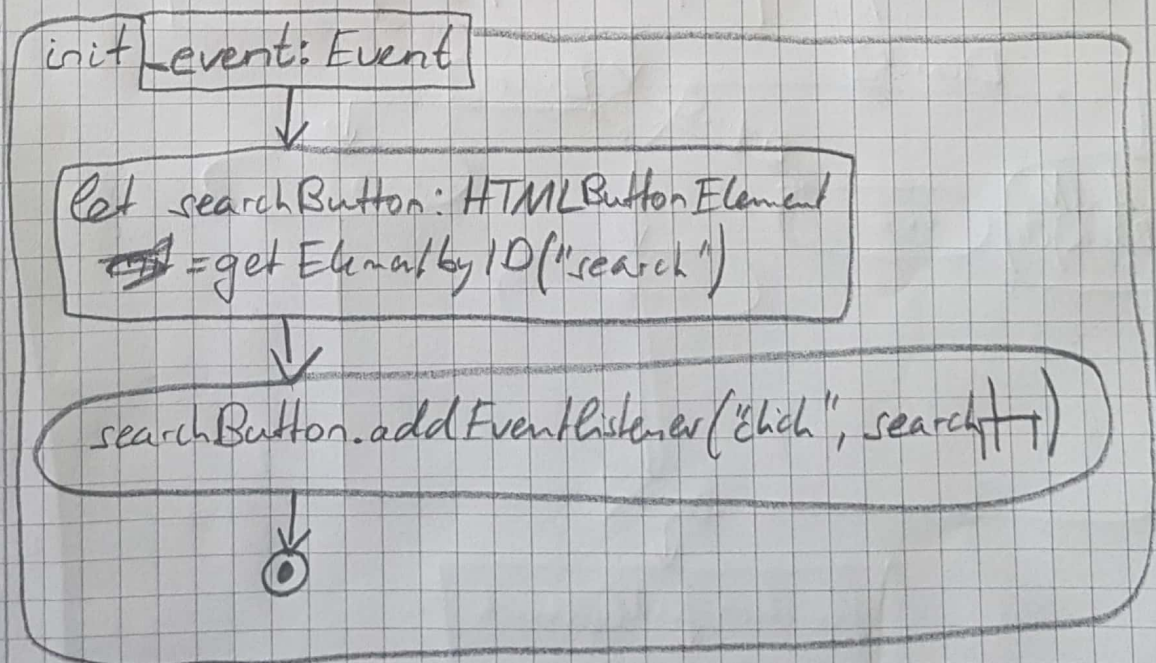 init _event: Event
let searchButton: HTMLButtonElement
= getElementbyID("search")
searchButton.addEventListener("click", search)